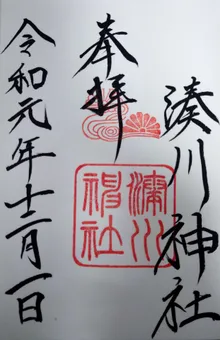 奉拝
湊川神社
湊川神社
令和元年十二月一日